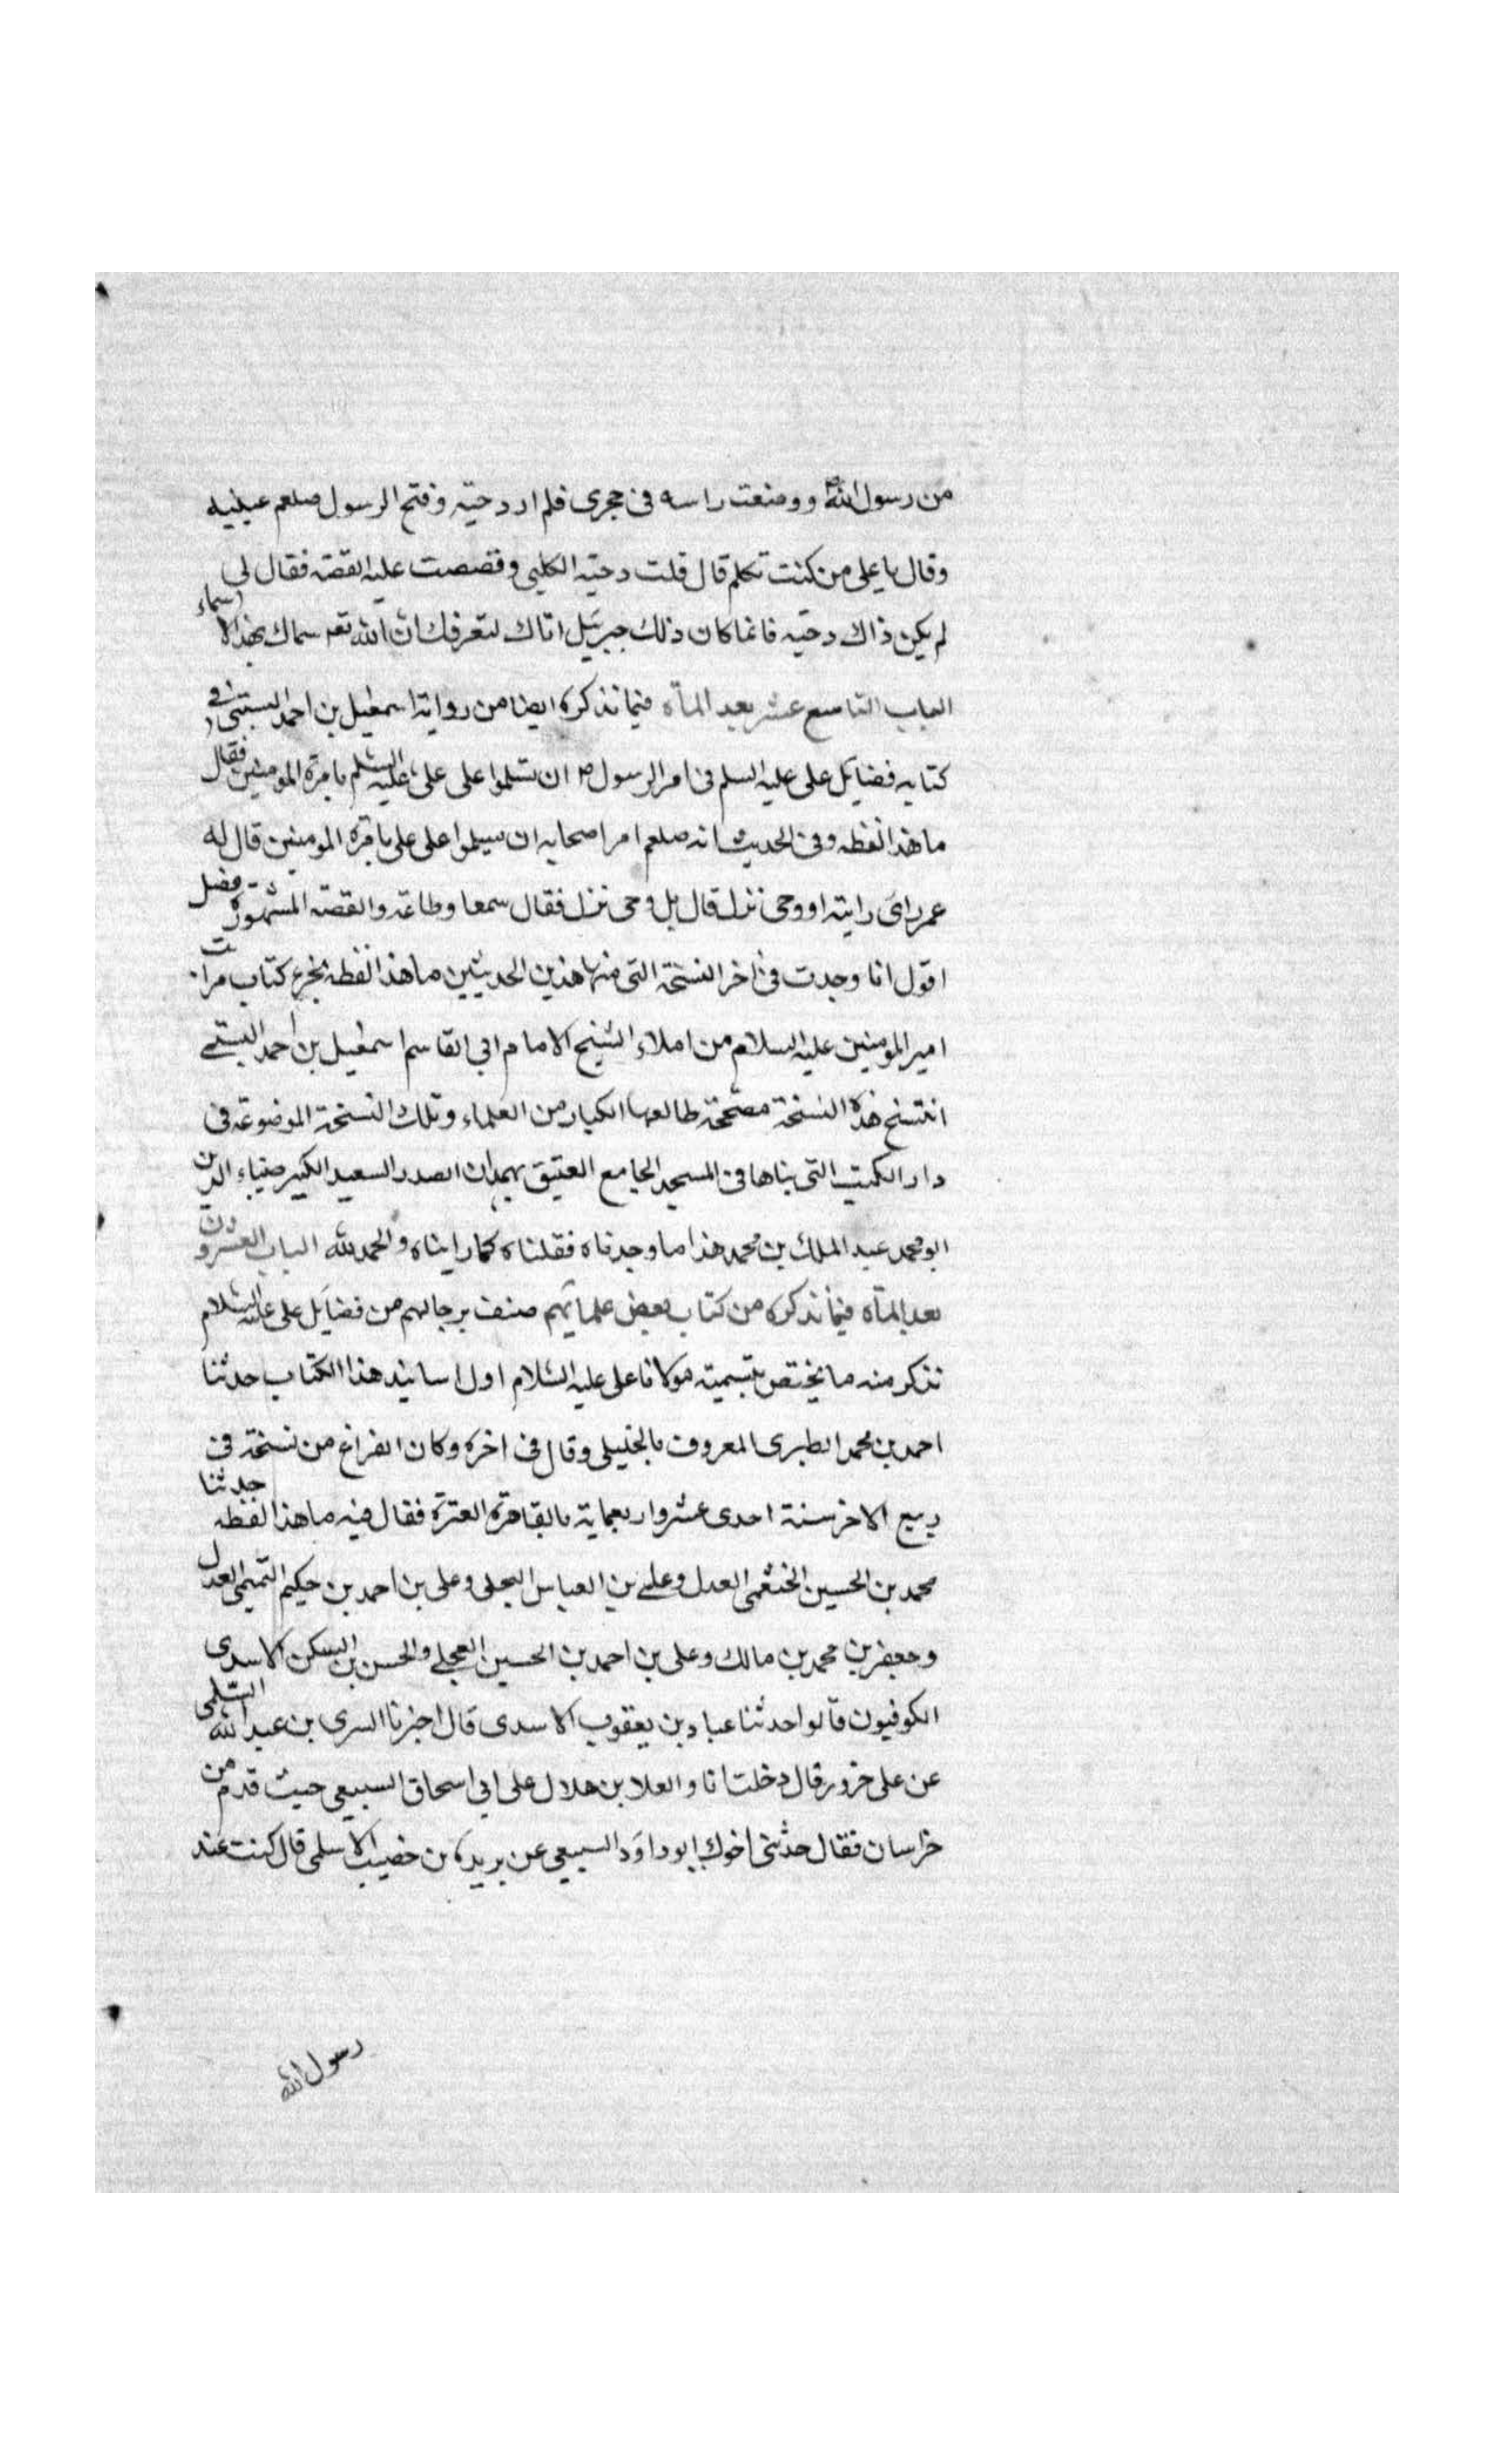 من رسول الله ص ووضعت راسه فى حجرى فلم ار دحيّه وفتح الرسول صلعم عينيه
وقال يا على من كنت تكلم قال قلت دحيّه الكلبى وقصصت عليه القصّه فقال لى
لم يكن ذاك دحيّه فانما كان ذلك جبرئيل اتاك ليعرفك ان الله تعم سماك بهذا الاسماء
الباب التاسع عشر بعد المأة فيما نذكره ايضا من رواية اسمعيل بن احمد البستى فى
كتابه فضايل على عليه السلم فى امر الرسول ص ان تسلموا على على عليه السلم بامرة المومنين فقال
ما هذا لفظه وفى الحديث انه صلعم امر اصحابه ان يسلموا على على بامرة المومنين قال له
عمر راى رايته او وحى نزل قال بل وحى نزل فقال سمعا وطاعة والقصّه المشهورة فصل
اقول انا وجدت فى اخر النسخة التى منها هذين الحديثين ما هذا لفظه نجز كتاب مرات
امير المومنين عليه السلام من املاء الشيخ الامام ابى القاسم اسمعيل بن احمد البستى
انتسخ هذه النسخة مصحّحة طالعها الكبار من العلماء وتلك النسخة الموضوعة فى
دار الكتب التى بناها فى المسجد الجامع العتيق بهمدان الصدر السعيد الكبير ضياء الدين
ابو محمد عبد الملك بن محمد هذا ما وجدناه فنقلناه كما رايناه والحمد لله الباب العشرون
بعد المأة فيما نذكره من كتاب بعض علمائهم صنف برجالهم من فضايل على عليه السلام
نذكر منه ما يختص بتسميته مولانا على عليه السلام اول اسانيد هذا الكتاب حدثنا
احمد بن محمد الطبرى المعروف بالخليلى وقال فى اخره وكان الفراغ من نسخة فى
ربيع الاخر سنة احدى عشر واربعماية بالقاهرة العترة فقال فيه ما هذا لفظه حدثنا
محمد بن الحسين الخثعمى العدل وعلى بن العباس البجلى وعلى بن احمد بن حكيم التميمى العدل
وجعفر بن محمد بن مالك وعلى بن احمد بن الحسين العجلى والحسن بن السكن الاسدى
الكوفيون قالوا حدثنا عباد بن يعقوب الاسدى قال اخبرنا السرى بن عبد الله السلمى
عن على خرور قال دخلت انا والعلا بن هلال على ابى اسحاق السبيعى حيث قدم من
خراسان فقال حدثنى اخوك ابو داود السبيعى عن بريدة بن خضيب الاسلمى قال كنت عند
رسول الله